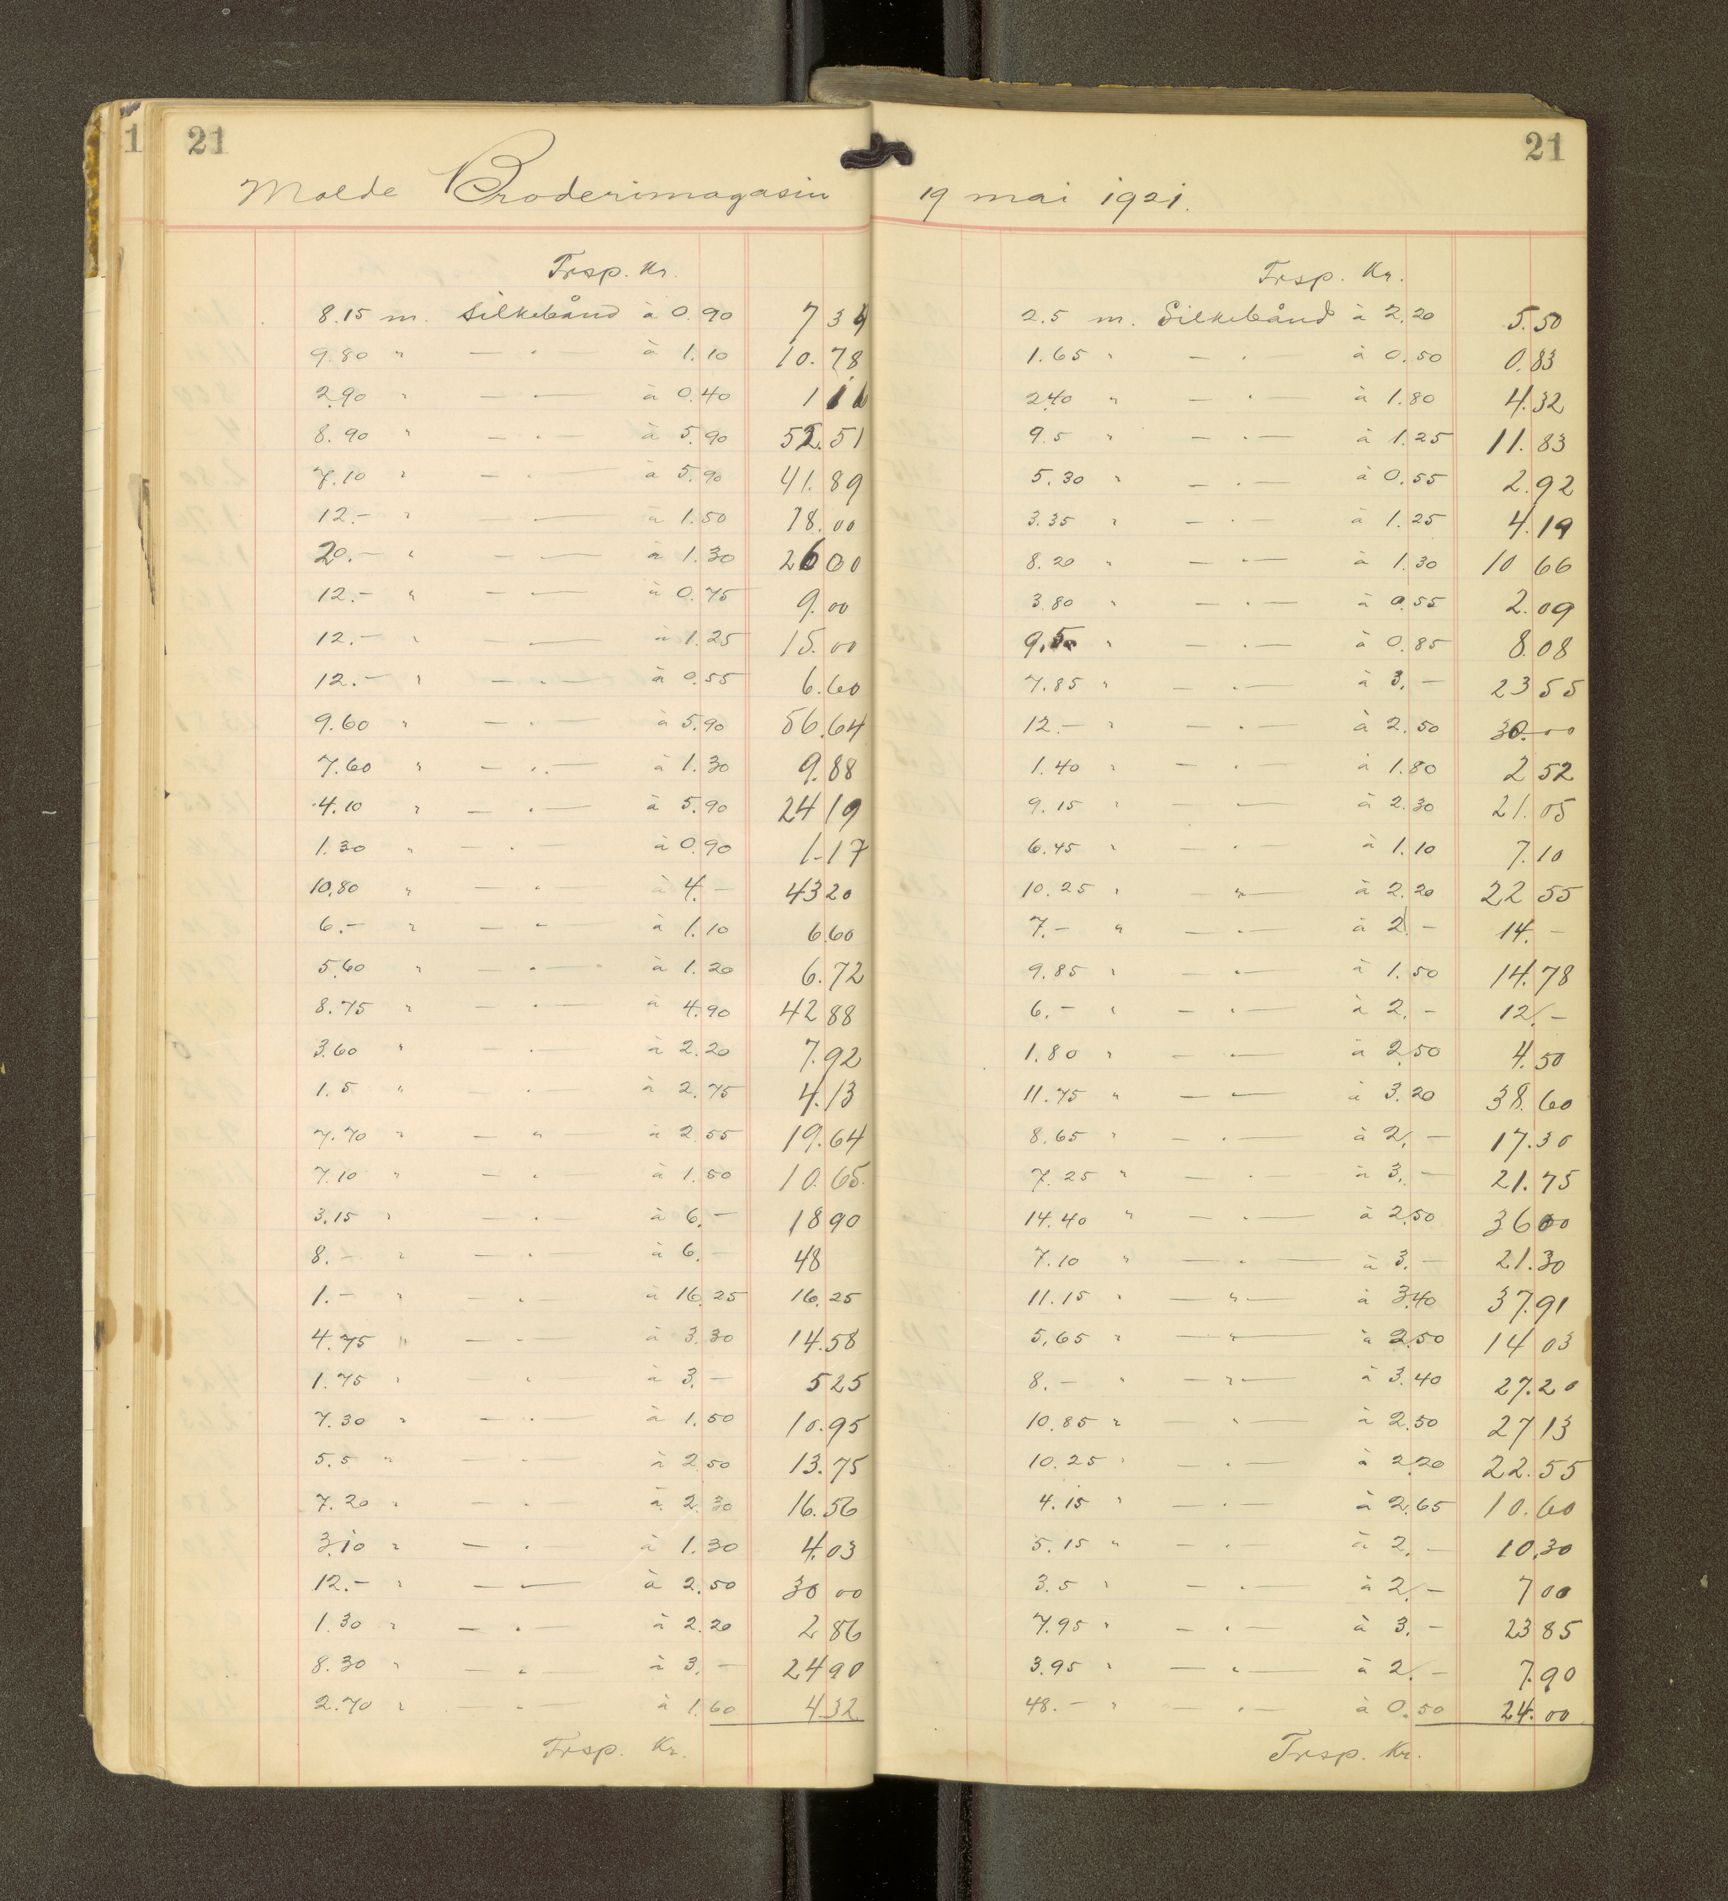 1 21
21
Molde Broderimagasin 19 mai 1921.
Trsp. Kr.
8.15 m. Silkebånd à 0.90 7 34
9.80 " — " — à 1.10 10.78
2.90 " — " — à 0.40 1 16
8.90 " — " — à 5.90 52.51
7.10 " — " — à 5.90 41.89
12.- " — " — à 1.50 18.00
20.- " — " — à 1.30 26 00
12.- " — " — à 0.75 9.00
12.- " — " — à 1.25 15.00
12.- " — " — à 0.55 6.60
9.60 " — " — à 5.90 56.64
7.60 " — " — à 1.30 9.88
4.10 " — " — à 5.90 24 19
1.30 " — " — à 0.90 1.17
10.80 " — " — à 4.- 43 20
6.- " — " — à 1.10 6.60
5.60 " — " — à 1.20 6.72
8.75 " — " — à 4.90 42 88
3.60 " — " — à 2.20 7.92
1.5 " — " — à 2.75 4.13
7.70 " — " — à 2.55 19.64
7.10 " — " — à 1.50 10.65
3.15 " — " — à 6.- 18 90
8.- " — " — à 6.- 48
1.- " — " — à 16.25 16.25
4.75 " — " — à 3.30 14.58
1.75 " — " — à 3.- 5 25
7.30 " — " — à 1.50 10.95
5.5 " — " — à 2.50 13.75
7.20 " — " — à 2.30 16.56
3.10 " — " — à 1.30 4.03
12.- " — " — à 2.50 30 00
1.30 " — " — à 2.20 2 86
8.30 " — " — à 3.- 24 90
2.70 " — " — à 1.60 4.32
Trsp. Kr.
Trsp. Kr.
2.5 m. Silkebånd à 2.20 5.50
1.65 " — " — à 0.50 0.83
2.40 " — " — à 1.80 4.32
9.5 " — " — à 1.25 11.83
5.30 " — " — à 0.55 2.92
3.35 " — " — à 1.25 4.19
8.20 " — " — à 1.30 10 66
3.80 " — " — à 0.55 2.09
9.5 " — " — à 0.85 8.08
7.85 " — " — à 3.- 23 55
12.- " — " — à 2.50 30.00
1.40 " — " — à 1.80 2 52
9.15 " — " — à 2.30 21.05
6.45 " — " — à 1.10 7.10
10.25 " — " — à 2.20 22 55
7.- " — " — à 2.- 14.-
9.85 " — " — à 1.50 14.78
6.- " — " — à 2.- 12.-
1.80 " — " — à 2.50 4.50
11.75 " — " — à 3.20 38.60
8.65 " — " — à 2.- 17.30
7.25 " — " — à 3.- 21.75
14.40 " — " — à 2.50 36 00
7.10 " — " — à 3.- 21.30
11.15 " — " — à 3.40 37.91
5.65 " — " — à 2.50 14 03
8.- " — " — à 3.40 27.20
10.85 " — " — à 2.50 27 13
10.25 " — " — à 2.20 22.55
4.15 " — " — à 2.65 10.60
5.15 " — " — à 2.- 10.30
3.5 " — " — à 2.- 7 00
7.95 " — " — à 3.- 23 85
3.95 " — " — à 2.- 7.90
48.- " — " — à 0.50 24.00
Trsp. Kr.